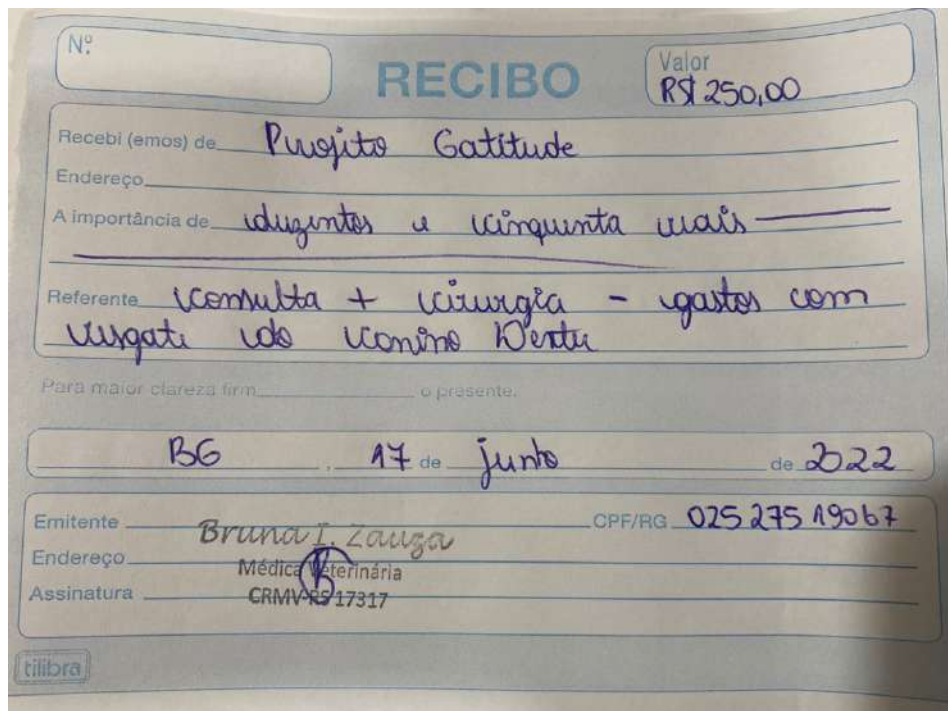 Nº
RECIBO
Valor
R$ 250,00
Recebi (emos) de Projeto Gatitude
Endereço
A importância de duzentos e cinquenta reais
Referente consulta + cirurgia - gastos com
resgate do canino
Para maior clareza firm o presente.
BG, 17 de junho de 2022
Emitente Bruna I. Zauza CPF/RG 025 275 19067
Endereço Médica Veterinária
Assinatura CRMV-RS 17317
tilibra